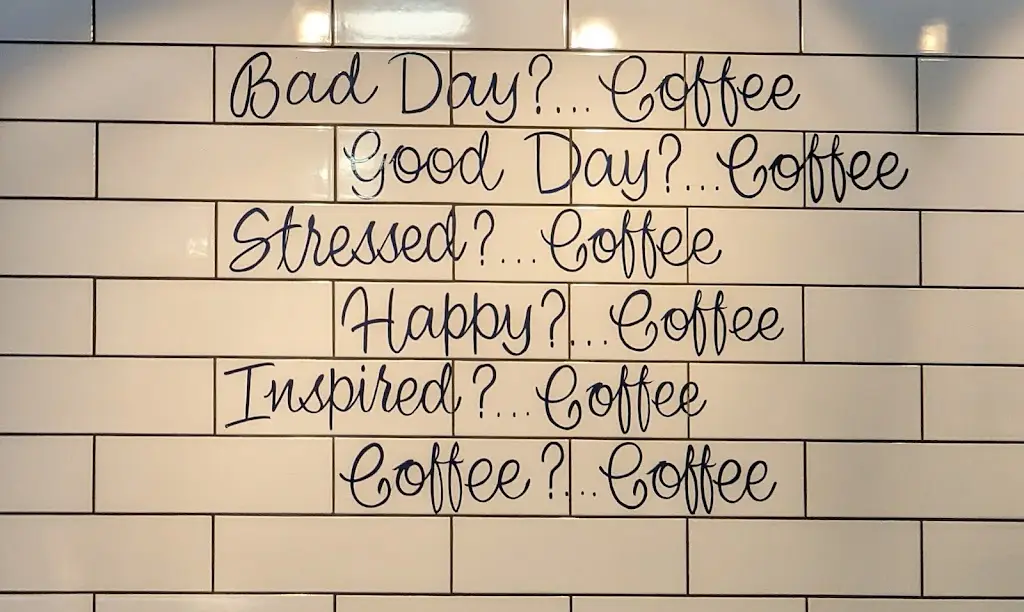 Bad Day?... Coffee
Good Day?... Coffee
Stressed?... Coffee
Happy?... Coffee
Inspired?... Coffee
Coffee?... Coffee